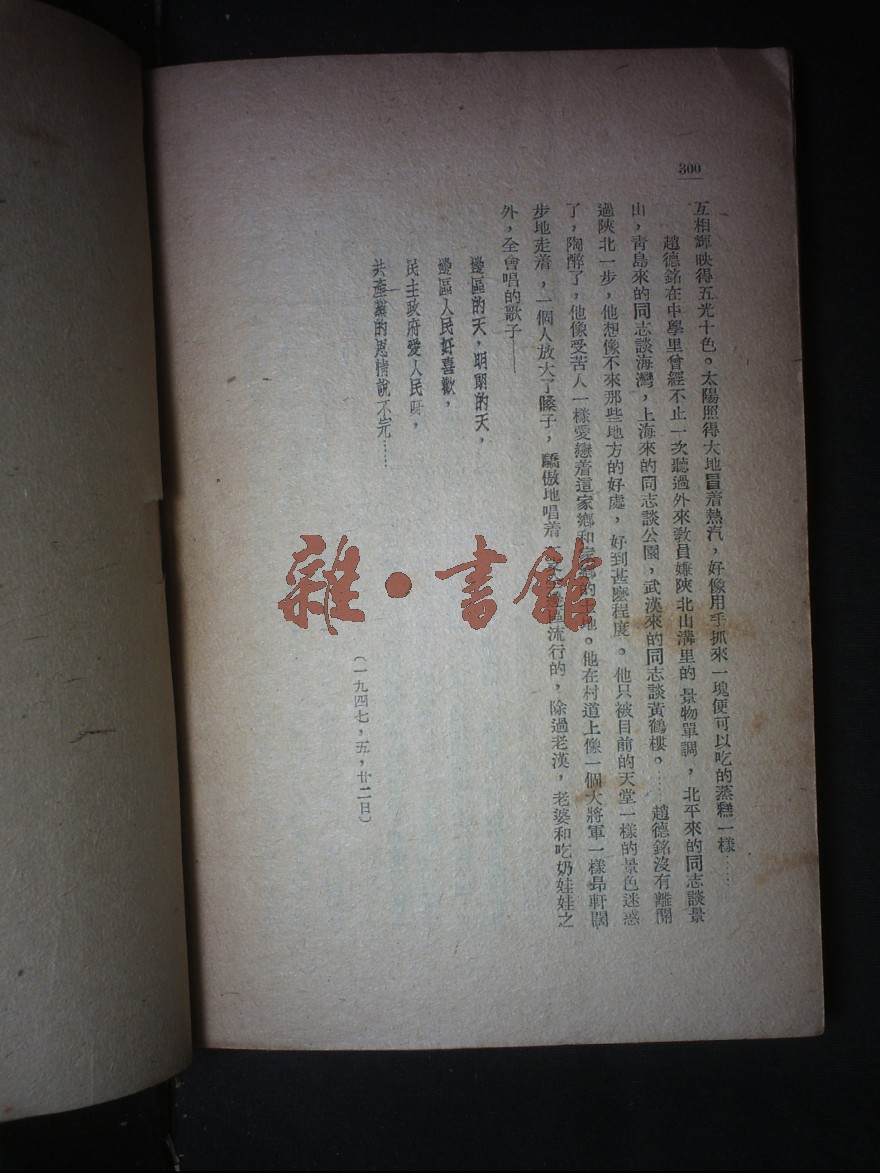 300
互相輝映得五光十色。太陽照得大地冒着熱汽，好像用手抓來一塊便可以吃的蒸糕一樣……
趙德銘在中學里曾經不止一次聽過外來教員嫌陝北山溝里的景物單調，北平來的同志談景
山，青島來的同志談海灣，上海來的同志談公園，武漢來的同志談黃鶴樓。……趙德銘沒有離開
過陝北一步，他想像不來那些地方的好處，好到甚麽程度。他只被目前的天堂一樣的景色迷惑
了，陶醉了，他像受苦人一樣愛戀着這家鄉和的土地。他在村道上像一個大將軍一樣昂軒闊
步地走着，一個人放大了嗓子，驕傲地唱着區流行的，除過老漢，老婆和吃奶娃娃之
外，全會唱的歌子——
邊區的天，明朗的天，
邊區人民好喜歡，
民主政府愛人民呀，
共產黨的恩情說不完……
（一九四七，五，廿二日）
雜·書館